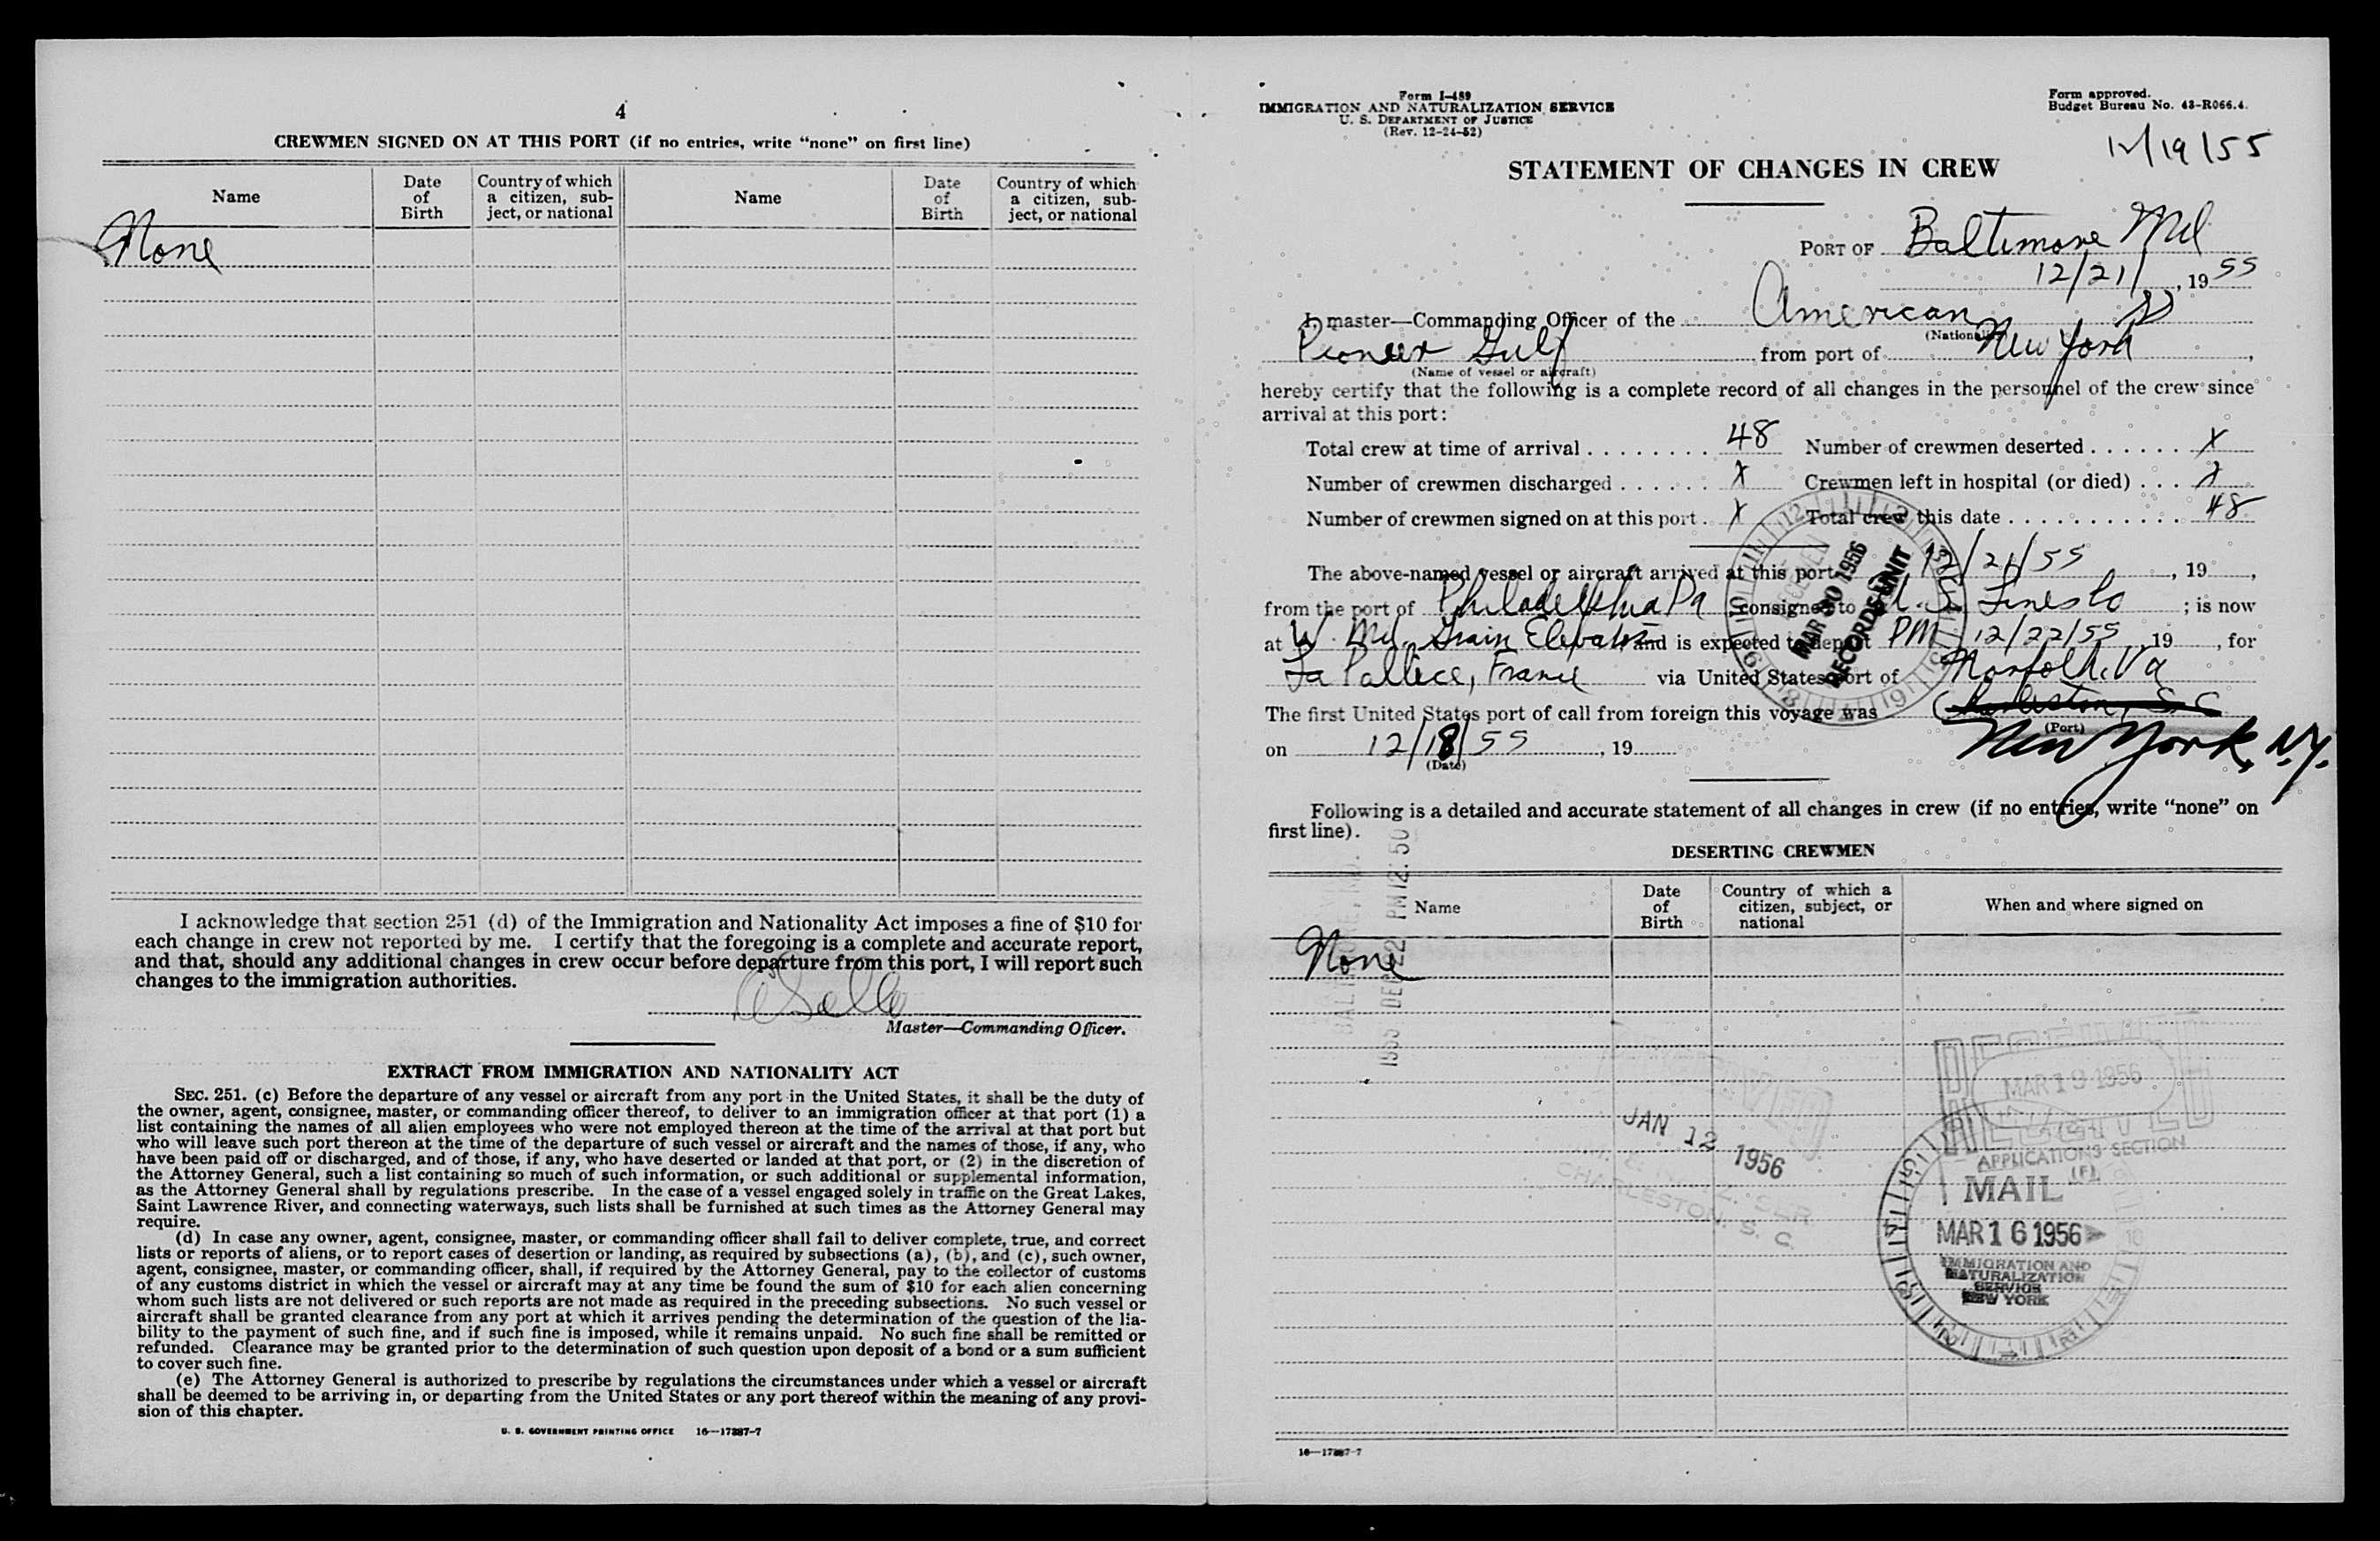 4
CREWMEN SIGNED ON AT THIS PORT (if no entries, write "none" on first line)
Name
Date of Birth
Country of which a citizen, subject, or national
Name
Date of Birth
Country of which a citizen, subject, or national
None
I acknowledge that section 251 (d) of the Immigration and Nationality Act imposes a fine of $10 for
each change in crew not reported by me. I certify that the foregoing is a complete and accurate report,
and that, should any additional changes in crew occur before departure from this port, I will report such
changes to the immigration authorities.
Master—Commanding Officer.
EXTRACT FROM IMMIGRATION AND NATIONALITY ACT
SEC. 251. (c) Before the departure of any vessel or aircraft from any port in the United States, it shall be the duty of
the owner, agent, consignee, master, or commanding officer thereof, to deliver to an immigration officer at that port (1) a
list containing the names of all alien employees who were not employed thereon at the time of the arrival at that port but
who will leave such port thereon at the time of the departure of such vessel or aircraft and the names of those, if any, who
have been paid off or discharged, and of those, if any, who have deserted or landed at that port, or (2) in the discretion of
the Attorney General, such a list containing so much of such information, or such additional or supplemental information,
as the Attorney General shall by regulations prescribe. In the case of a vessel engaged solely in traffic on the Great Lakes,
Saint Lawrence River, and connecting waterways, such lists shall be furnished at such times as the Attorney General may
require.
(d) In case any owner, agent, consignee, master, or commanding officer shall fail to deliver complete, true, and correct
lists or reports of aliens, or to report cases of desertion or landing, as required by subsections (a), (b), and (c), such owner,
agent, consignee, master, or commanding officer, shall, if required by the Attorney General, pay to the collector of customs
of any customs district in which the vessel or aircraft may at any time be found the sum of $10 for each alien concerning
whom such lists are not delivered or such reports are not made as required in the preceding subsections. No such vessel or
aircraft shall be granted clearance from any port at which it arrives pending the determination of the question of the lia-
bility to the payment of such fine, and if such fine is imposed, while it remains unpaid. No such fine shall be remitted or
refunded. Clearance may be granted prior to the determination of such question upon deposit of a bond or a sum sufficient
to cover such fine.
(e) The Attorney General is authorized to prescribe by regulations the circumstances under which a vessel or aircraft
shall be deemed to be arriving in, or departing from the United States or any port thereof within the meaning of any provi-
sion of this chapter.
U. S. GOVERNMENT PRINTING OFFICE 16—17387-7
Form I-489
IMMIGRATION AND NATURALIZATION SERVICE
U. S. DEPARTMENT OF JUSTICE
(Rev. 12-24-52)
Form approved.
Budget Bureau No. 43-R066.4.
12/19/55
STATEMENT OF CHANGES IN CREW
PORT OF Baltimore Md
12/21/, 1955
I, master—Commanding Officer of the American SS
(Nationality)
Pioneer Gulf from port of New York,
(Name of vessel or aircraft)
hereby certify that the following is a complete record of all changes in the personnel of the crew since
arrival at this port:
Total crew at time of arrival 48 Number of crewmen deserted X
Number of crewmen discharged X Crewmen left in hospital (or died) X
Number of crewmen signed on at this port X Total crew this date 48
The above-named vessel or aircraft arrived at this port 12/21/55, 19,
from the port of Philadelphia Pa consigned to U.S. Lines Co; is now
at W. Md. Grain Elevator and is expected to depart PM 12/22/55, 19, for
La Pallice, France via United States port of Norfolk, Va
The first United States port of call from foreign this voyage was Charleston, S C
(Port)
New York, N.Y.
on 12/18/55, 19
(Date)
RECEIVED
MAR 30 1956
RECORDS UNIT
Following is a detailed and accurate statement of all changes in crew (if no entries, write "none" on
first line).
DESERTING CREWMEN
Name
Date of Birth
Country of which a citizen, subject, or national
When and where signed on
None
BALTIMORE, MD.
1955 DEC 22 PM 12:50
RECEIVED
JAN 12 1956
CHARLESTON, S. C.
RECEIVED
MAR 19 1956
APPLICATIONS SECTION
MAIL
MAR 16 1956
IMMIGRATION AND
NATURALIZATION
SERVICE
NEW YORK
16—17387-7